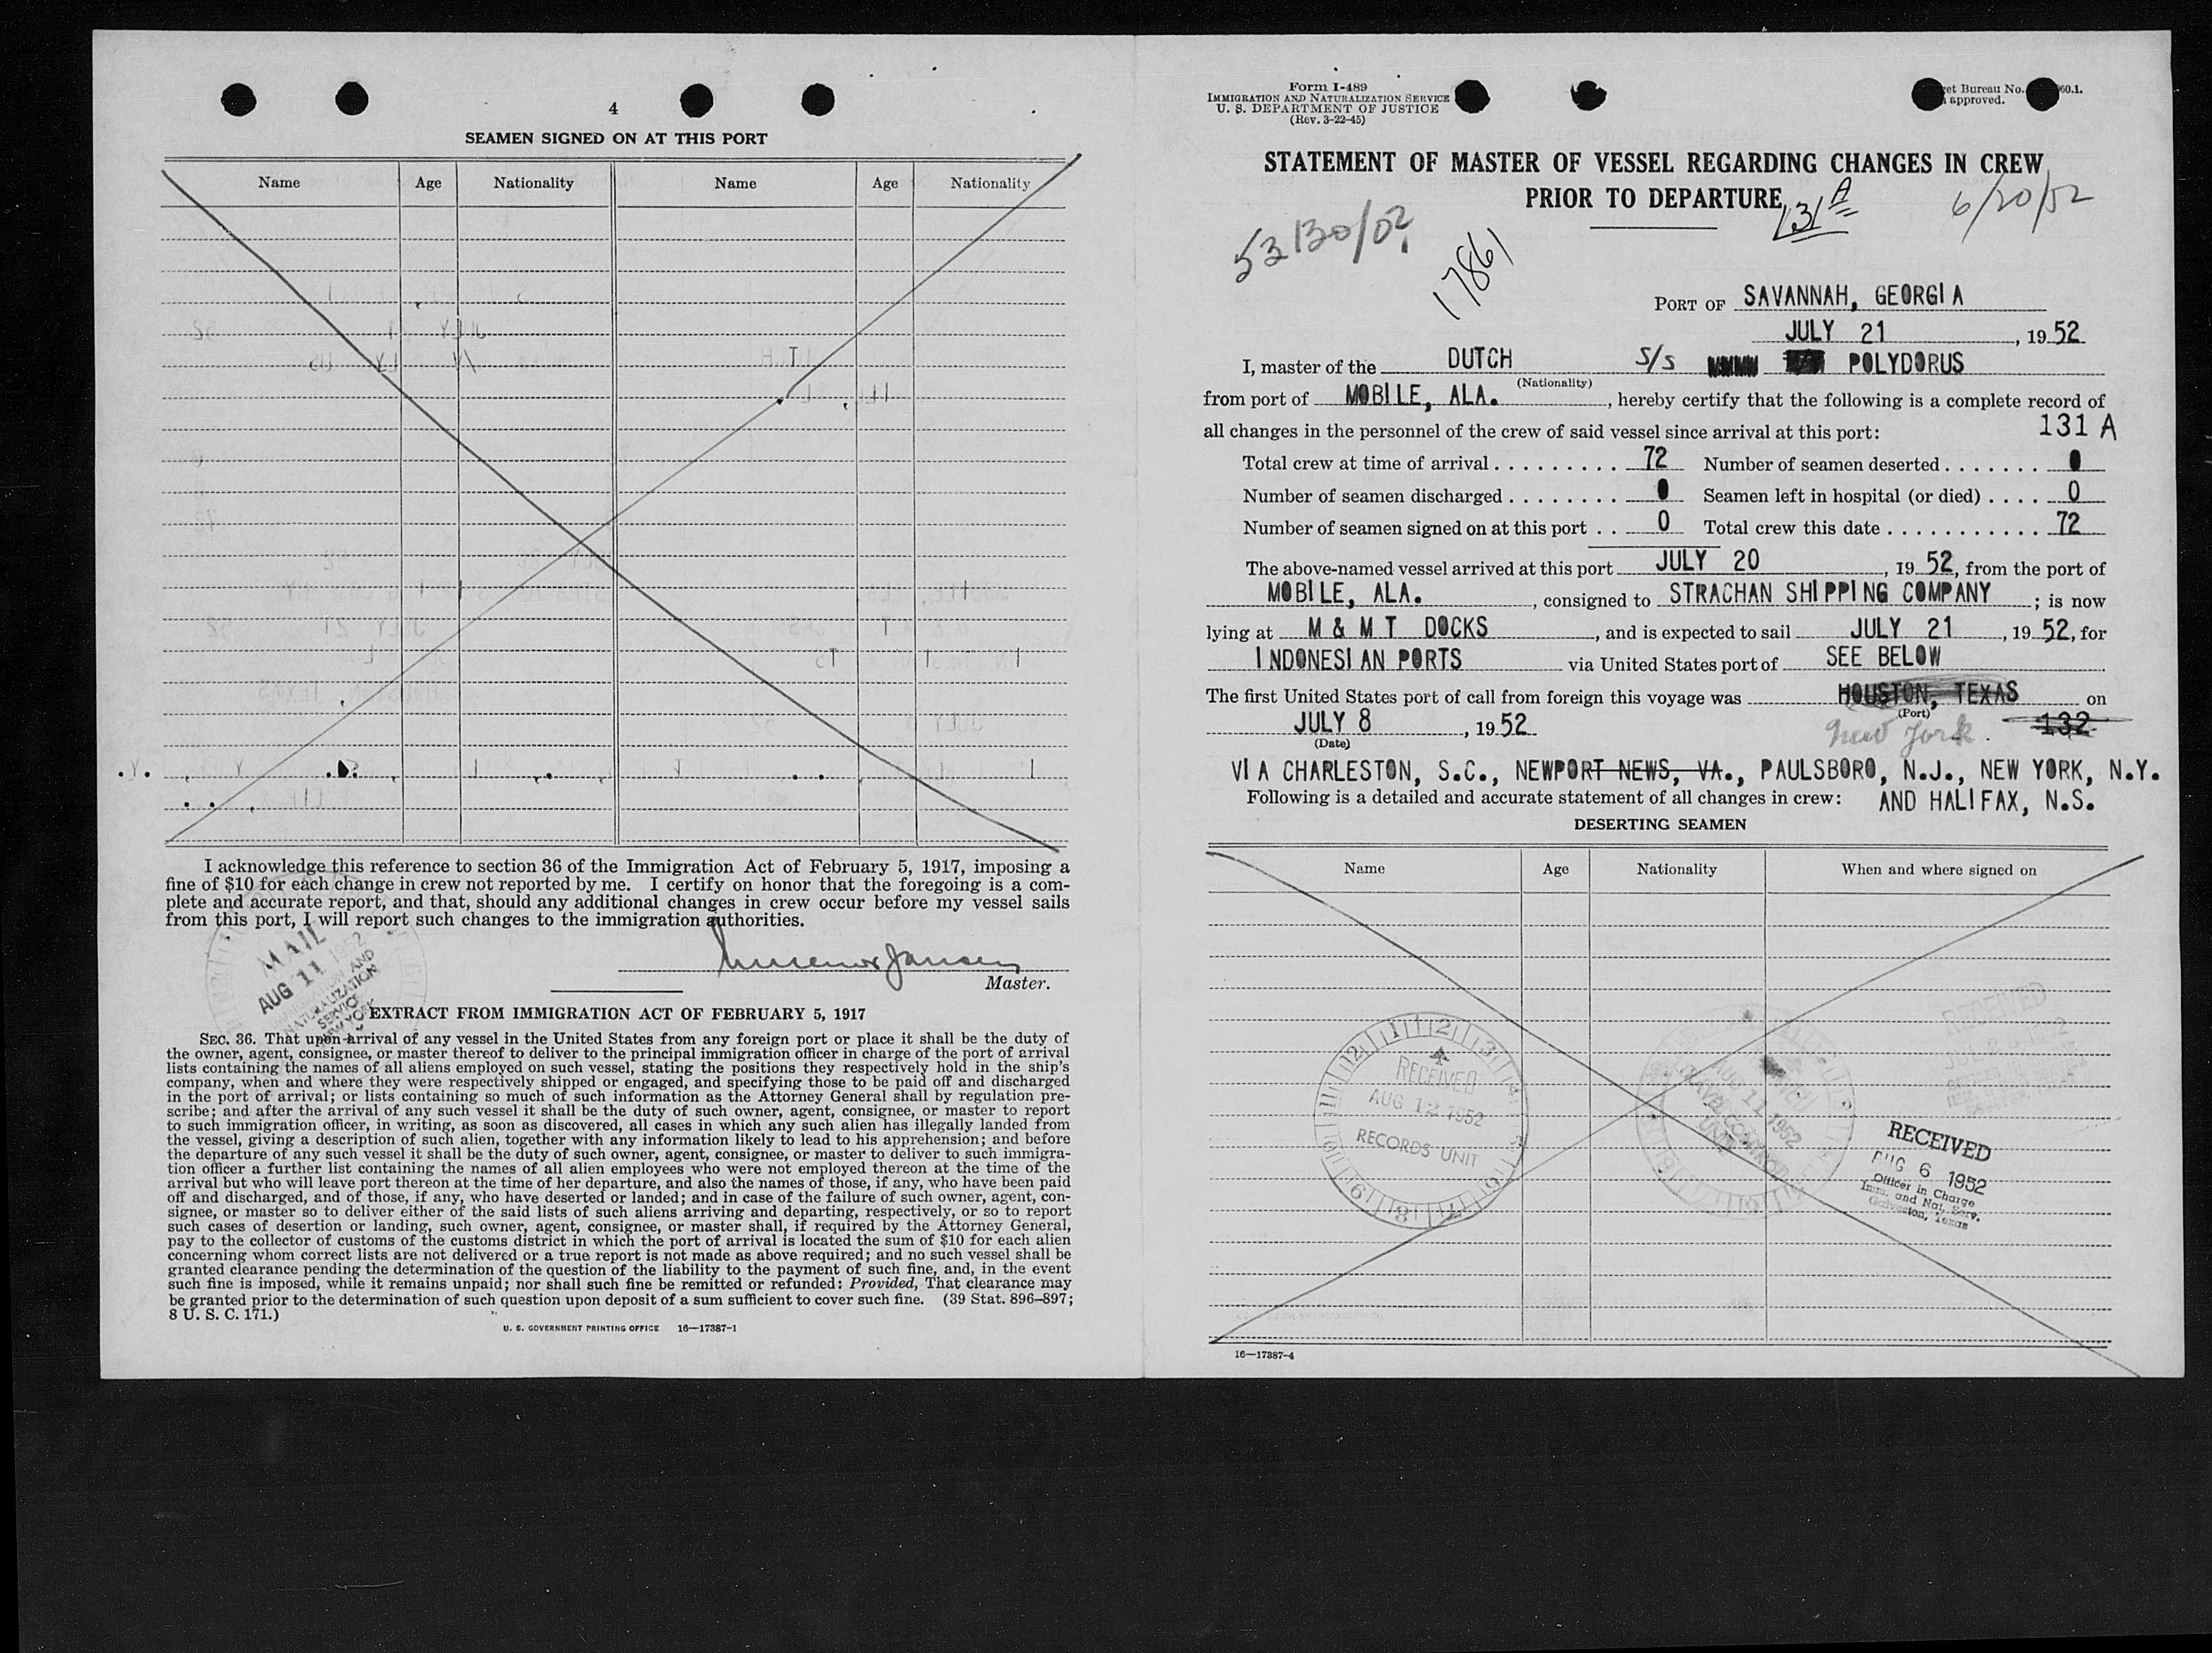 4
SEAMEN SIGNED ON AT THIS PORT
Name Age Nationality Name Age Nationality
I acknowledge this reference to section 36 of the Immigration Act of February 5, 1917, imposing a
fine of $10 for each change in crew not reported by me. I certify on honor that the foregoing is a com-
plete and accurate report, and that, should any additional changes in crew occur before my vessel sails
from this port, I will report such changes to the immigration authorities.
MAIL
AUG 11 1952
NATURALIZATION
SERVICE
NEW YORK
Jansen
Master.
EXTRACT FROM IMMIGRATION ACT OF FEBRUARY 5, 1917
SEC. 36. That upon arrival of any vessel in the United States from any foreign port or place it shall be the duty of
the owner, agent, consignee, or master thereof to deliver to the principal immigration officer in charge of the port of arrival
lists containing the names of all aliens employed on such vessel, stating the positions they respectively hold in the ship's
company, when and where they were respectively shipped or engaged, and specifying those to be paid off and discharged
in the port of arrival; or lists containing so much of such information as the Attorney General shall by regulation pre-
scribe; and after the arrival of any such vessel it shall be the duty of such owner, agent, consignee, or master to report
to such immigration officer, in writing, as soon as discovered, all cases in which any such alien has illegally landed from
the vessel, giving a description of such alien, together with any information likely to lead to his apprehension; and before
the departure of any such vessel it shall be the duty of such owner, agent, consignee, or master to deliver to such immigra-
tion officer a further list containing the names of all alien employees who were not employed thereon at the time of the
arrival but who will leave port thereon at the time of her departure, and also the names of those, if any, who have been paid
off and discharged, and of those, if any, who have deserted or landed; and in case of the failure of such owner, agent, con-
signee, or master so to deliver either of the said lists of such aliens arriving and departing, respectively, or so to report
such cases of desertion or landing, such owner, agent, consignee, or master shall, if required by the Attorney General,
pay to the collector of customs of the customs district in which the port of arrival is located the sum of $10 for each alien
concerning whom correct lists are not delivered or a true report is not made as above required; and no such vessel shall be
granted clearance pending the determination of the question of the liability to the payment of such fine, and, in the event
such fine is imposed, while it remains unpaid; nor shall such fine be remitted or refunded: Provided, That clearance may
be granted prior to the determination of such question upon deposit of a sum sufficient to cover such fine. (39 Stat. 896–897;
8 U. S. C. 171.)
U. S. GOVERNMENT PRINTING OFFICE 16—17387-1
Form I-489
IMMIGRATION AND NATURALIZATION SERVICE
U. S. DEPARTMENT OF JUSTICE
(Rev. 3-22-45)
Bureau No. 60.1.
approved.
STATEMENT OF MASTER OF VESSEL REGARDING CHANGES IN CREW
PRIOR TO DEPARTURE
131 A
6/20/52
17861
PORT OF SAVANNAH, GEORGIA
JULY 21, 1952
I, master of the DUTCH S/S POLYDORUS
(Nationality)
from port of MOBILE, ALA., hereby certify that the following is a complete record of
all changes in the personnel of the crew of said vessel since arrival at this port: 131 A
Total crew at time of arrival . . . . . . . . . 72 Number of seamen deserted . . . . . . . 0
Number of seamen discharged . . . . . . . . 0 Seamen left in hospital (or died) . . . . 0
Number of seamen signed on at this port . . 0 Total crew this date . . . . . . . . . . . 72
The above-named vessel arrived at this port JULY 20, 1952, from the port of
MOBILE, ALA., consigned to STRACHAN SHIPPING COMPANY; is now
lying at M & M T DOCKS, and is expected to sail JULY 21, 1952, for
INDONESIAN PORTS via United States port of SEE BELOW
The first United States port of call from foreign this voyage was HOUSTON, TEXAS on
(Port)
JULY 8, 1952 New York 132
(Date)
VIA CHARLESTON, S.C., NEWPORT NEWS, VA., PAULSBORO, N.J., NEW YORK, N.Y.
Following is a detailed and accurate statement of all changes in crew: AND HALIFAX, N.S.
DESERTING SEAMEN
Name Age Nationality When and where signed on
RECEIVED
AUG 12 1952
RECORDS UNIT
AUG 11 1952
TRAVEL CONTROL
UNIT
RECEIVED
RECEIVED
AUG 6 1952
Officer in Charge
Imm. and Nat. Serv.
Galveston, Texas
16—17387-4